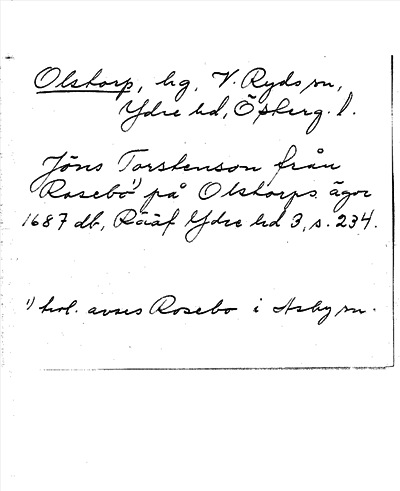 Olstorp, hg, V. Ryds sn,
Ydre hd, Österg. l.
Jöns Torstenson från
Rosebo¹⁾ på Olstorps ägor
1687 db, Rääf Ydre hd 3, s. 234.
¹⁾ trol. avses Rosebo i Asby sn.